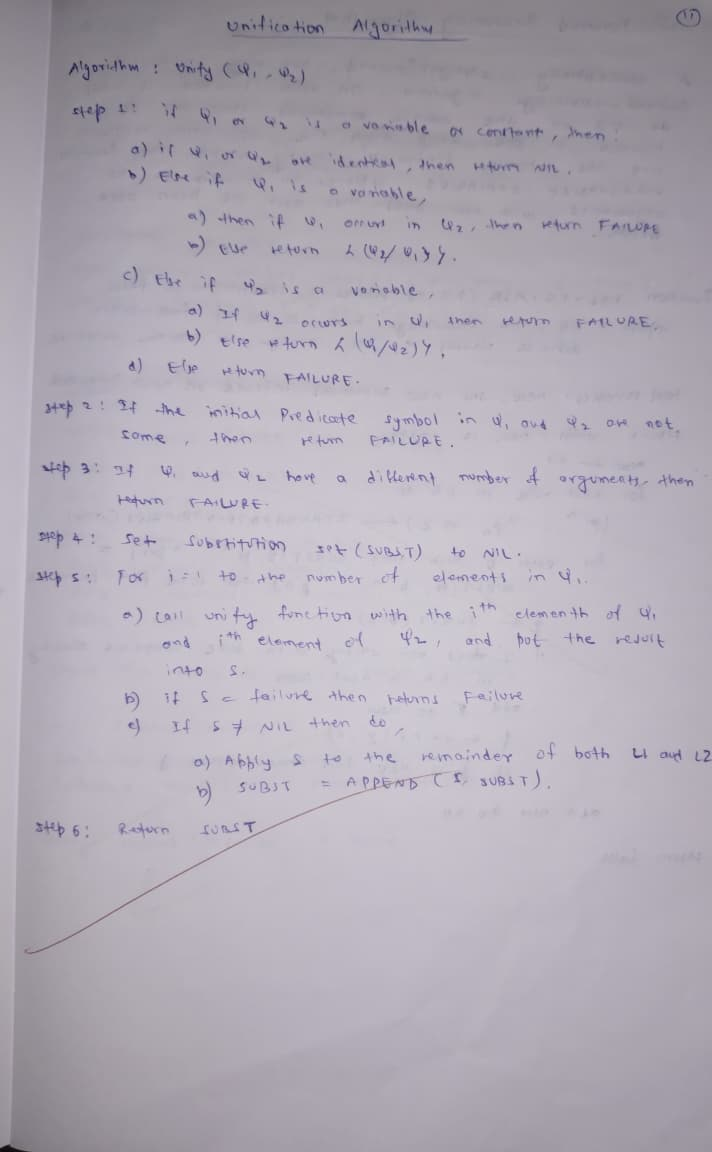 11
Unification Algorithm
Algorithm : Unify (Ψ1, Ψ2)
Step 1: if Ψ1 or Ψ2 is a variable or constant, then:
a) if Ψ1 or Ψ2 are identical, then return NIL.
b) Else if Ψ1 is a variable,
a) then if Ψ1 occurs in Ψ2, then return FAILURE
b) Else return {(Ψ2/Ψ1)}.
c) Else if Ψ2 is a variable,
a) If Ψ2 occurs in Ψ1 then return FAILURE.
b) Else return {(Ψ1/Ψ2)},
d) Else return FAILURE.
Step 2: If the initial Predicate symbol in Ψ1 and Ψ2 are not
same, then return FAILURE.
Step 3: If Ψ1 and Ψ2 have a different number of arguments, then
return FAILURE.
Step 4: Set Substitution set (SUBST) to NIL.
Step 5: For i=1 to the number of elements in Ψ1.
a) Call unify function with the ith elementh of Ψ1
and ith element of Ψ2, and put the result
into S.
b) if S = failure then returns Failure
c) If S ≠ NIL then do,
a) Apply S to the remainder of both L1 and L2
b) SUBST = APPEND (S, SUBST).
Step 6: Return SUBST